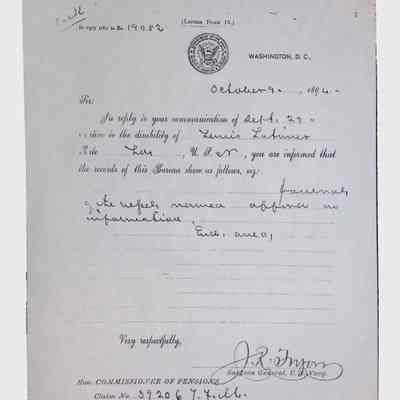 (LETTER FORM 15.)
In reply refer to No. 19082
WASHINGTON, D. C.,
October 9, 1894.
Sir:
In reply to your communication of Sept. 29
relative to the disability of Lewis Latimer
late Lds, U. S. N., you are informed that
the records of this Bureau show as follows, viz:
Journals
of the vessels named afford no
information.
Encl.
Very respectfully,
J. R. Tryon
Surgeon General, U. S. Navy.
Hon. COMMISSIONER OF PENSIONS
Claim No. 39206